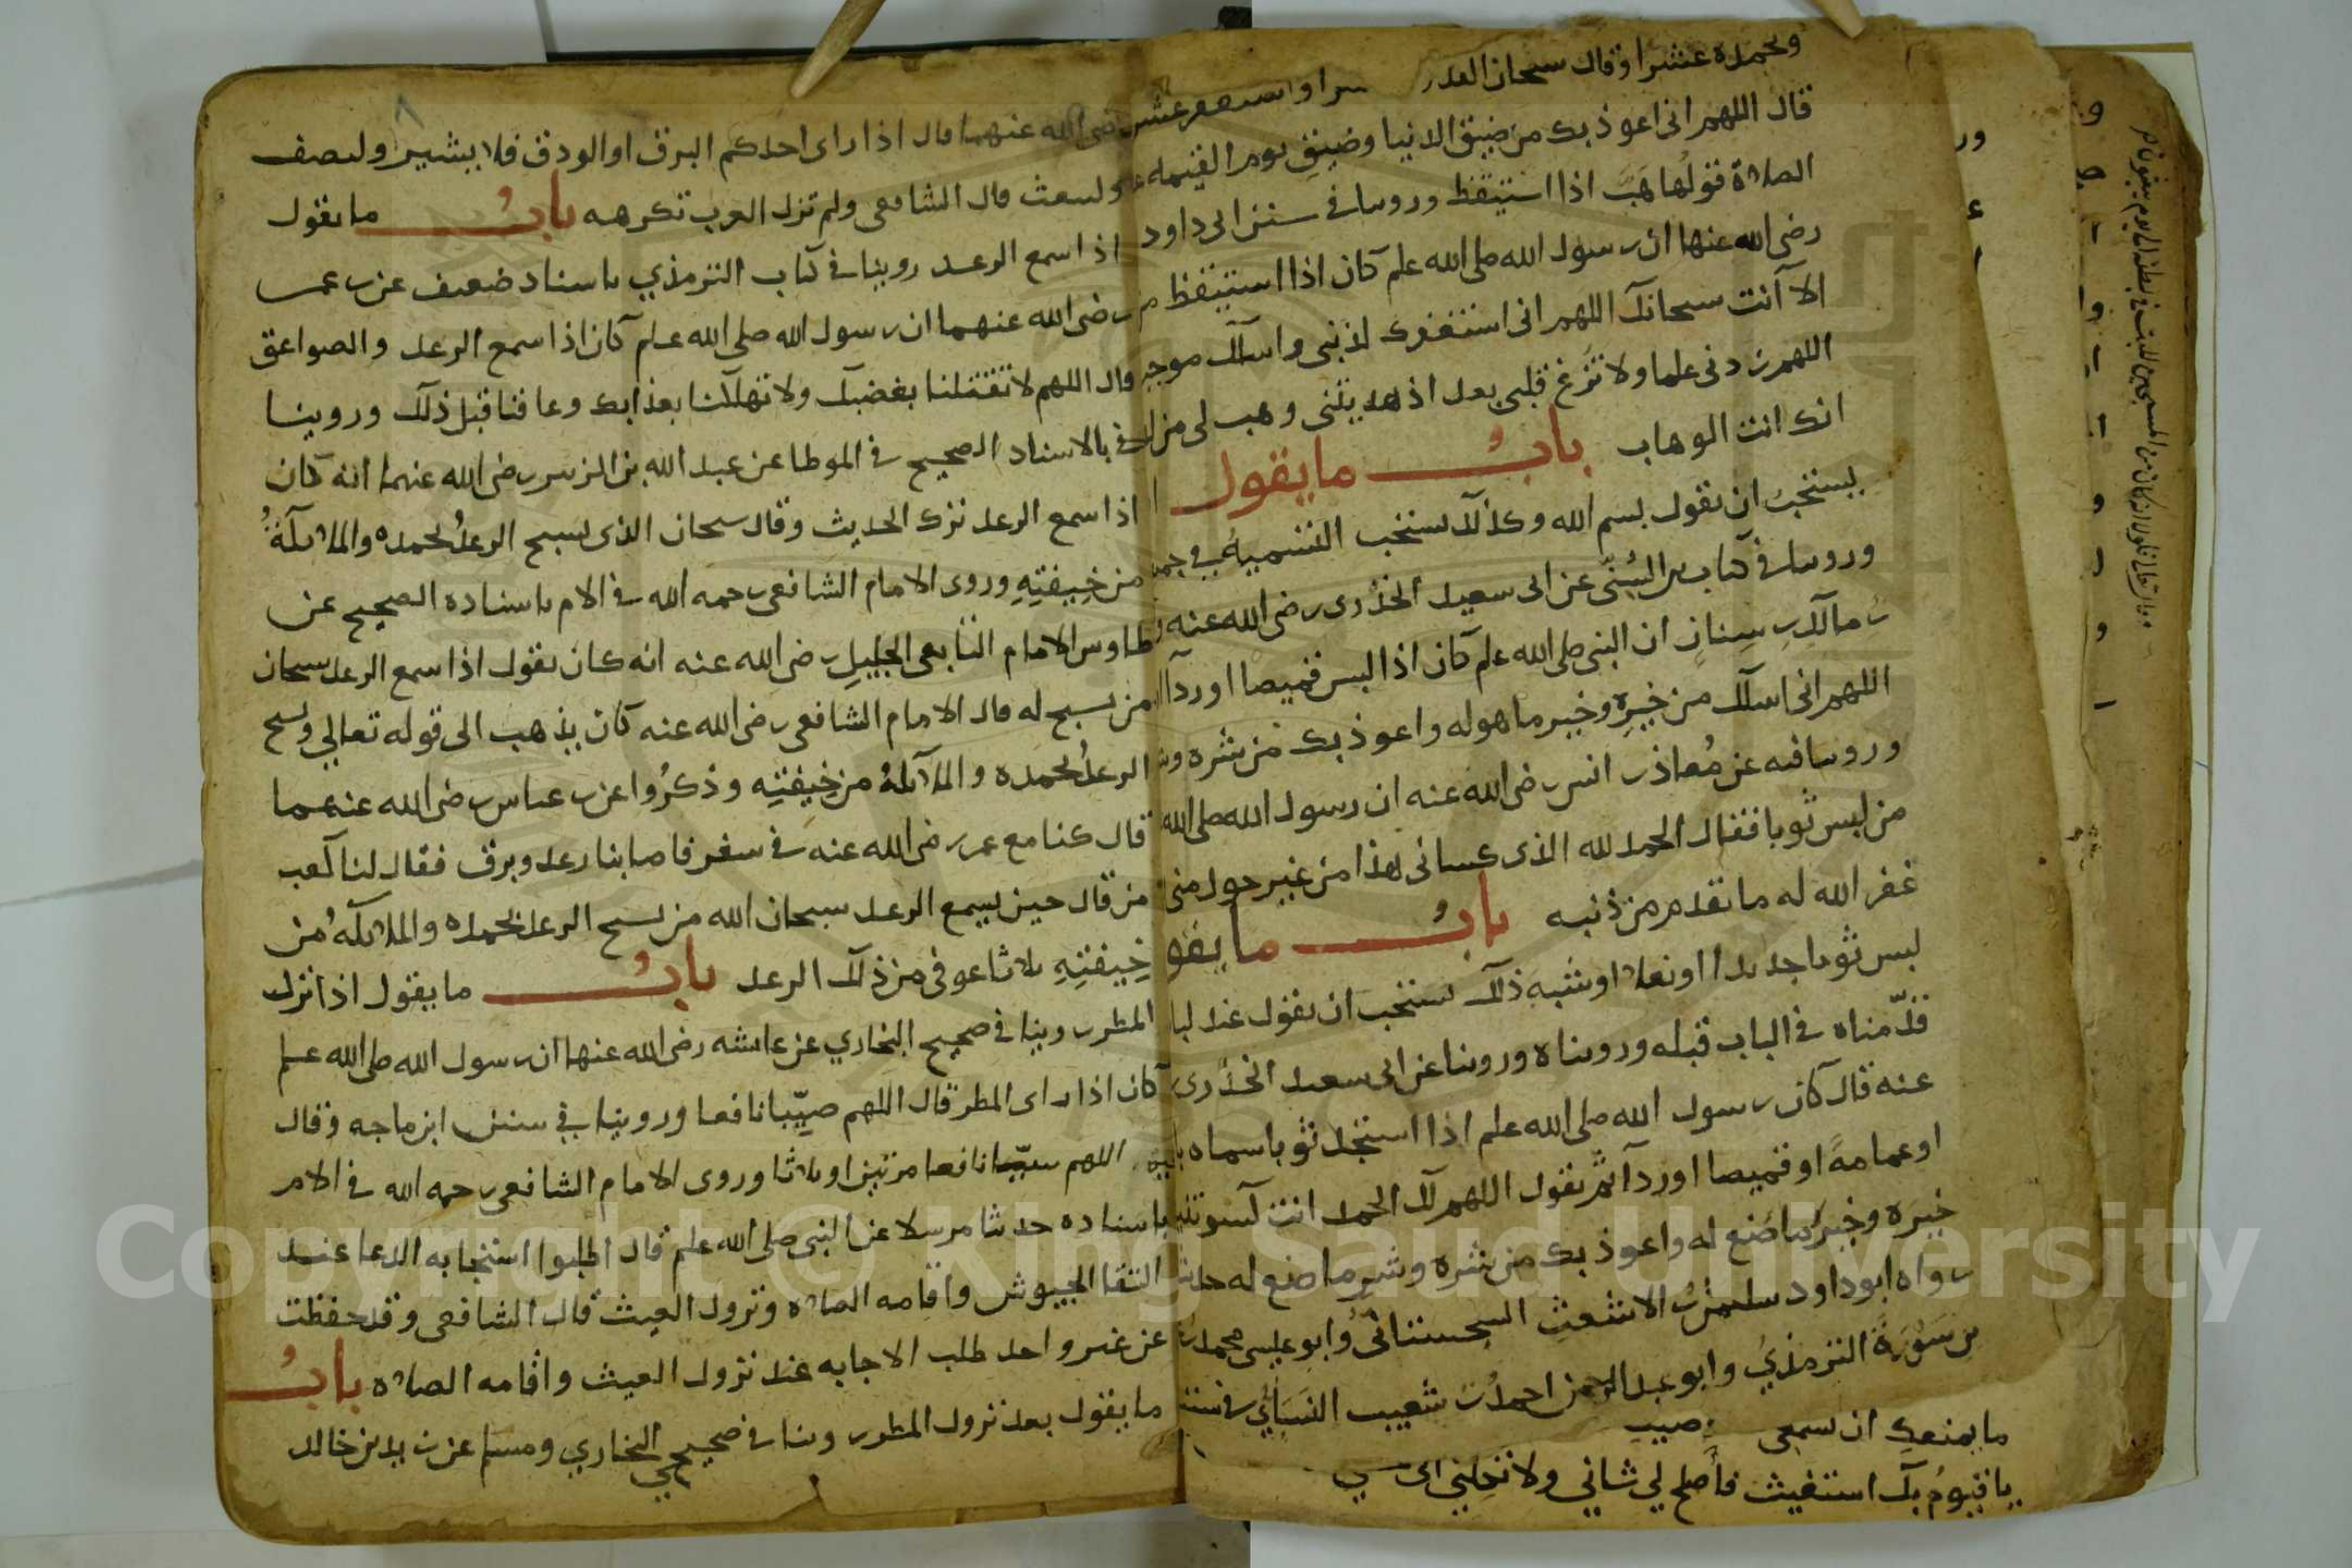 وبحمده عشرا وقال سبحان القدو سرا واستغفر عشر
قال اللهم انى اعوذ بك من ضيق الدنيا وضيق يوم القيمه
الصلاة قولها هَبّ اذا استيقظ وروينا فى سنن ابى داود
رضى الله عنها ان رسول الله صلى الله علم كان اذا استيقظ م
الا انت سبحانك اللهم انى استغفرك لذنبى واسالك موجب
اللهم زدنى علما ولا تزغ قلبى بعد اذ هديتنى وهب لى من لد
انك انت الوهاب بابُ ما يقول ا
يستحبّ ان يقول بسم الله وكذلك تستحب التسمية في جم
وروينا فى كتاب بن السُنّى عن ابى سعيد الخدرى رضى الله عنه
بن مالك بن سِنانٍ ان النبى صلى الله علم كان اذا لبس قميصا او ردآ
اللهم انى اسالك من خيره وخير ما هو له واعوذ بك من شره وش
وروينا فيه عن مُعاذ بن انس رضى الله عنه ان رسول الله صلى الله
من لبس ثوبا فقال الحمد لله الذى كسانى هذا من غير حول منى
غفر الله له ما تقدم من ذنبه بابُ ما يقو
لبس ثوبا جديدا او نعلا او شبه ذلك يستحب ان يقول عند لبا
قدّمناه فى الباب قبله وروينا عن ابى سعيد الخُدرى
عنه قال كان رسول الله صلى الله علم اذا استجد ثوبا سماه با
او عمامة او قميصا او ردآ ثم يقول اللهم لك الحمد انت كسوتني
خيره وخيرَ ما صُنع له واعوذ بك من شره وشر ما صنع له حديث
رواه ابو داود سليمن بن الاشعث السجستانى وابو عيسى محمد بن
بن سَوْرَة الترمذي وابو عبد الرحمن احمد بن شعيب النسائي فى سنن
ما يمنعك ان تسمعى وصيب
يا قيوم بك استغيث فأصلح لي شاني ولا تكلني الى
رضى الله عنهما قال اذا راى احدكم البرق او الودق فلا يشير وليصف
ولينعت قال الشافعى ولم تزل العرب تكرهه بابُ ما يقول
اذا سمع الرعد روينا فى كتاب الترمذي باسناد ضعيف عن بن عمر
رضى الله عنهما ان رسول الله صلى الله علم كان اذا سمع الرعد والصواعق
قال اللهم لا تقتلنا بغضبك ولا تهلكنا بعذابك وعافنا قبل ذلك وروينا
بالاسناد الصحيح فى الموطا عن عبد الله بن الزبير رضى الله عنهما انه كان
اذا سمع الرعد ترك الحديث وقال سبحان الذى يسبح الرعدُ بحمده والملائكةُ
من خِيفتِهِ وروى الامام الشافعى رحمه الله فى الام باسناده الصحيح عن
طاوس الامام التابعى الجليل رضى الله عنه انه كان يقول اذا سمع الرعد سبحان
من يسبح له قال الامام الشافعى رضى الله عنه كان يذهب الى قوله تعالي ويسبح
الرعدُ بحمده والملائكةُ من خِيفتِه وذكرُوا عن بن عباس رضى الله عنهما
قال كنا مع عمر رضى الله عنه فى سفر فاصابنا رعد وبرق فقال لنا كعب
من قال حين يسمع الرعد سبحان الله من يسبح الرعد بحمده والملائكةُ من
خِيفتِهِ ثلاثا عوفى من ذلك الرعد بابُ ما يقول اذا نزل
المطر روينا فى صحيح البخاري عن عائشه رضى الله عنها ان رسول الله صلى الله علم
كان اذا راى المطر قال اللهم صيّبا نافعا وروينا في سنن ابن ماجه وقال
فيه اللهم سيّبا نافعا مرتين او ثلاثا وروى الامام الشافعى رحمه الله فى الام
باسناده حديثا مرسلا عن النبى صلى الله علم قال اطلبوا استجابه الدعا عند
التقا الجيوش واقامه الصلاه ونزول الغيث قال الشافعى وقد حفظت
عن غير واحد طلب الاجابه عند نزول الغيث واقامه الصلاه بابُ
ما يقول بعد نزول المطر روينا فى صحيحي البخاري ومسلم عن زيد بن خالد
Copyright © King Saud University